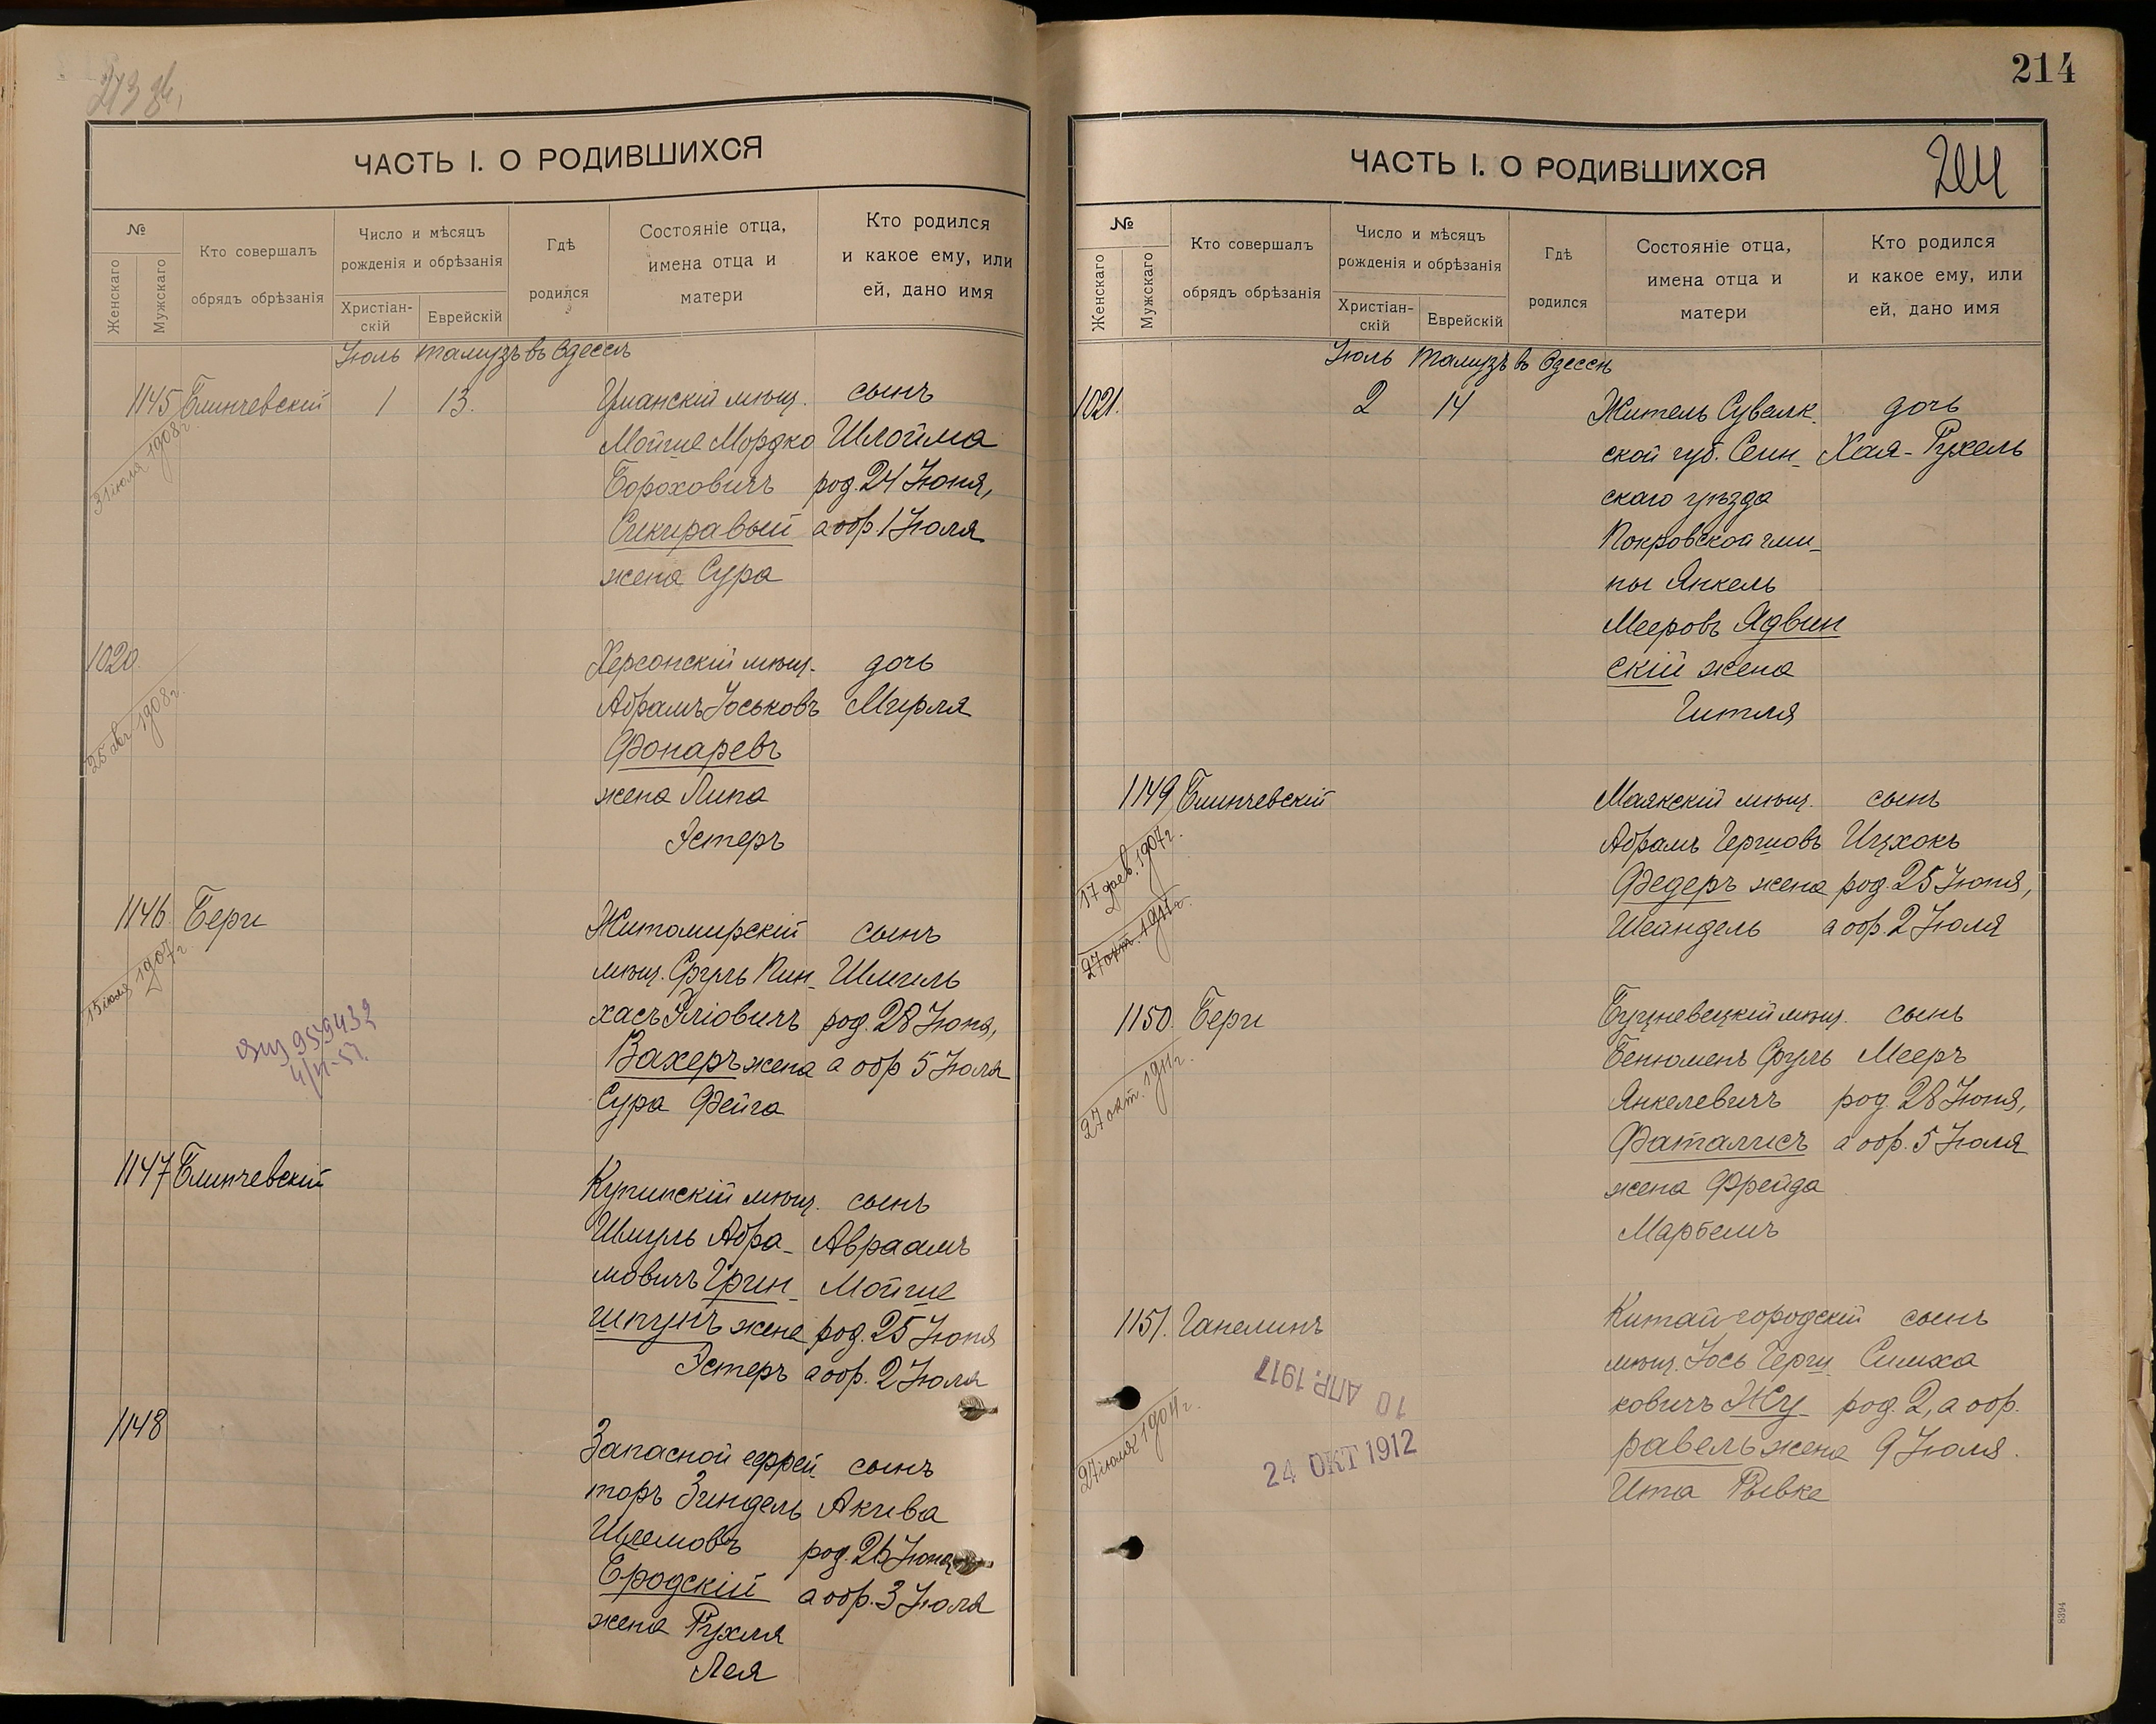 213 об.
ЧАСТЬ I. О РОДИВШИХСЯ
№
Женскаго
Мужскаго
Кто совершалъ
обрядъ обрѣзанія
Число и мѣсяцъ
рожденія и обрѣзанія
Христіан-
скій
Еврейскій
Гдѣ
родился
Состояніе отца,
имена отца и
матери
Кто родился
и какое ему, или
ей, дано имя
Іюль Тамузъ въ Одессѣ
1145 Блинчевскій 1 13. Уманскій мѣщ. сынъ
31 іюля 1908 г.
Мойше Мордко Шлойма
Бороховичъ род. 24 Іюня,
Сикиравый а обр. 1 Іюля
жена Сура
1020. Херсонскій мѣщ. дочь
25 авг 1908 г.
Абрамъ Іоськовъ Мирля
Фонаревъ
жена Липа
Эстеръ
1146. Бери Житомирскій сынъ
15 іюля 1907 г.
мѣщ. Сруль Пин- Шмиль
хасъ Эліовичъ род. 28 Іюня,
Вахеръ жена а обр 5 Іюля
Сура Фейга
9539432
1147 Блинчевскій Купинскій мѣщ. сынъ
Шмуль Абра- Авраамъ
мовичъ Грин- Мойше
шпунъ жена род. 25 Іюня
Эстеръ а обр. 2 Іюля
1148 Запасной ефрей- сынъ
торъ Зиндель Акива
Шлемовъ род. 26 Іюня
Бродскій а обр. 3 Іюля
жена Рухля
Лея
214
ЧАСТЬ I. О РОДИВШИХСЯ
214
№
Женскаго
Мужскаго
Кто совершалъ
обрядъ обрѣзанія
Число и мѣсяцъ
рожденія и обрѣзанія
Христіан-
скій
Еврейскій
Гдѣ
родился
Состояніе отца,
имена отца и
матери
Кто родился
и какое ему, или
ей, дано имя
Іюль Тамузъ въ Одессѣ
1021. 2 14 Житель Сувалк- дочь
ской губ. Сейн- Хая-Рухель
скаго уѣзда
Покровской гми-
ны Янкель
Мееровъ Ядвин
скій жена
Гитля
1149 Блинчевскій Маякскій мѣщ. сынъ
17 фев. 1907 г.
27 окт. 1911 г.
Абрамъ Гершовъ Ицхокъ
Федеръ жена род. 25 Іюня,
Шейндель а обр. 2 Іюля
1150. Бери Буцневецкій мѣщ. сынъ
27 окт. 1911 г.
Бенюменъ Сруль Мееръ
Янкелевичъ род. 28 Іюня,
Фаталисъ а обр. 5 Іюля
жена Фрейда
Марбемъ
1151. Гапелинъ Китай-городскій сынъ
10 АПР. 1917
24 ОКТ 1912
27 іюля 1904 г.
мѣщ. Іось Герш- Симха
ковичъ Жу- род. 2, а обр.
равель жена 9 Іюля.
Ита Рывке
8394